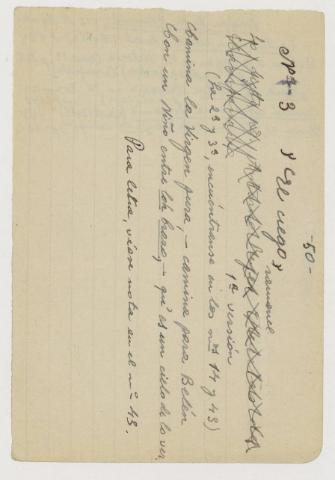 -50-
Nº 3 "El ciego"
romance
1ª versión
(La 2ª y 3ª, encuéntranse en los nos 14 y 43)
Camina la Virgen pura, - camina para Belén
Con un Niño entre los brazos, - qu'es un cielo de lo ver.
Para letra, véase nota en el nº 43.